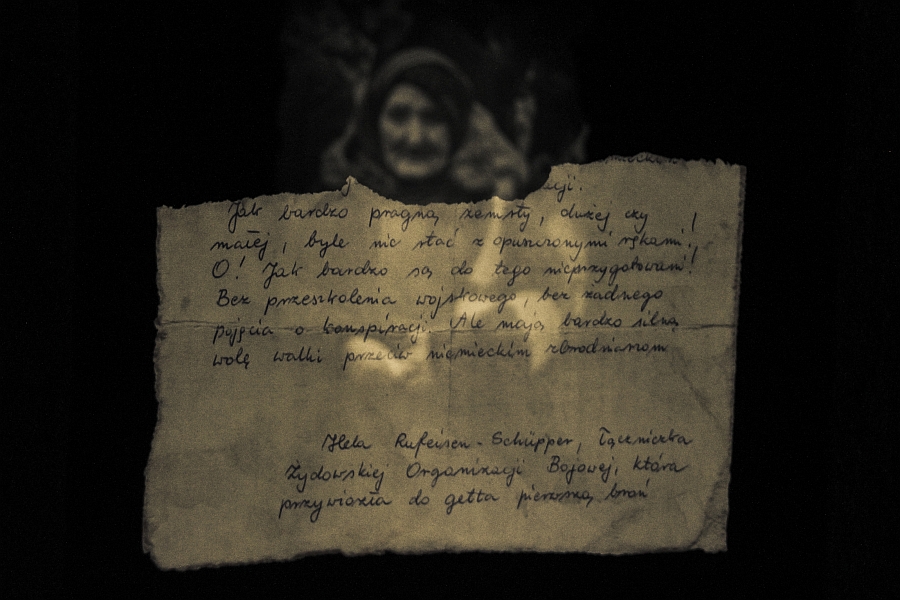 cji.
Jak bardzo pragną zemsty, dużej czy
małej, byle nie stać z opuszczonymi rękami!
O! Jak bardzo są do tego nieprzygotowani!
Bez przeszkolenia wojskowego, bez żadnego
pojęcia o konspiracji. Ale mają bardzo silną
wolę walki przeciw niemieckim zbrodniarzom
Hela Rufeisen-Schüpper, łączniczka
Żydowskiej Organizacji Bojowej, która
przywiozła do getta pierwszą broń